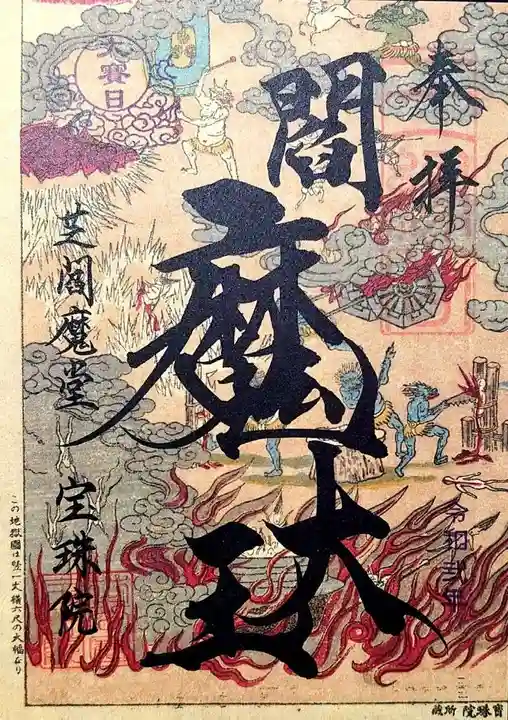 奉拝
閻魔大王
大賽日
芝閻魔堂 宝珠院
令和弐年
この地獄図は竪一丈横六尺の大幅なり
寳珠院所蔵